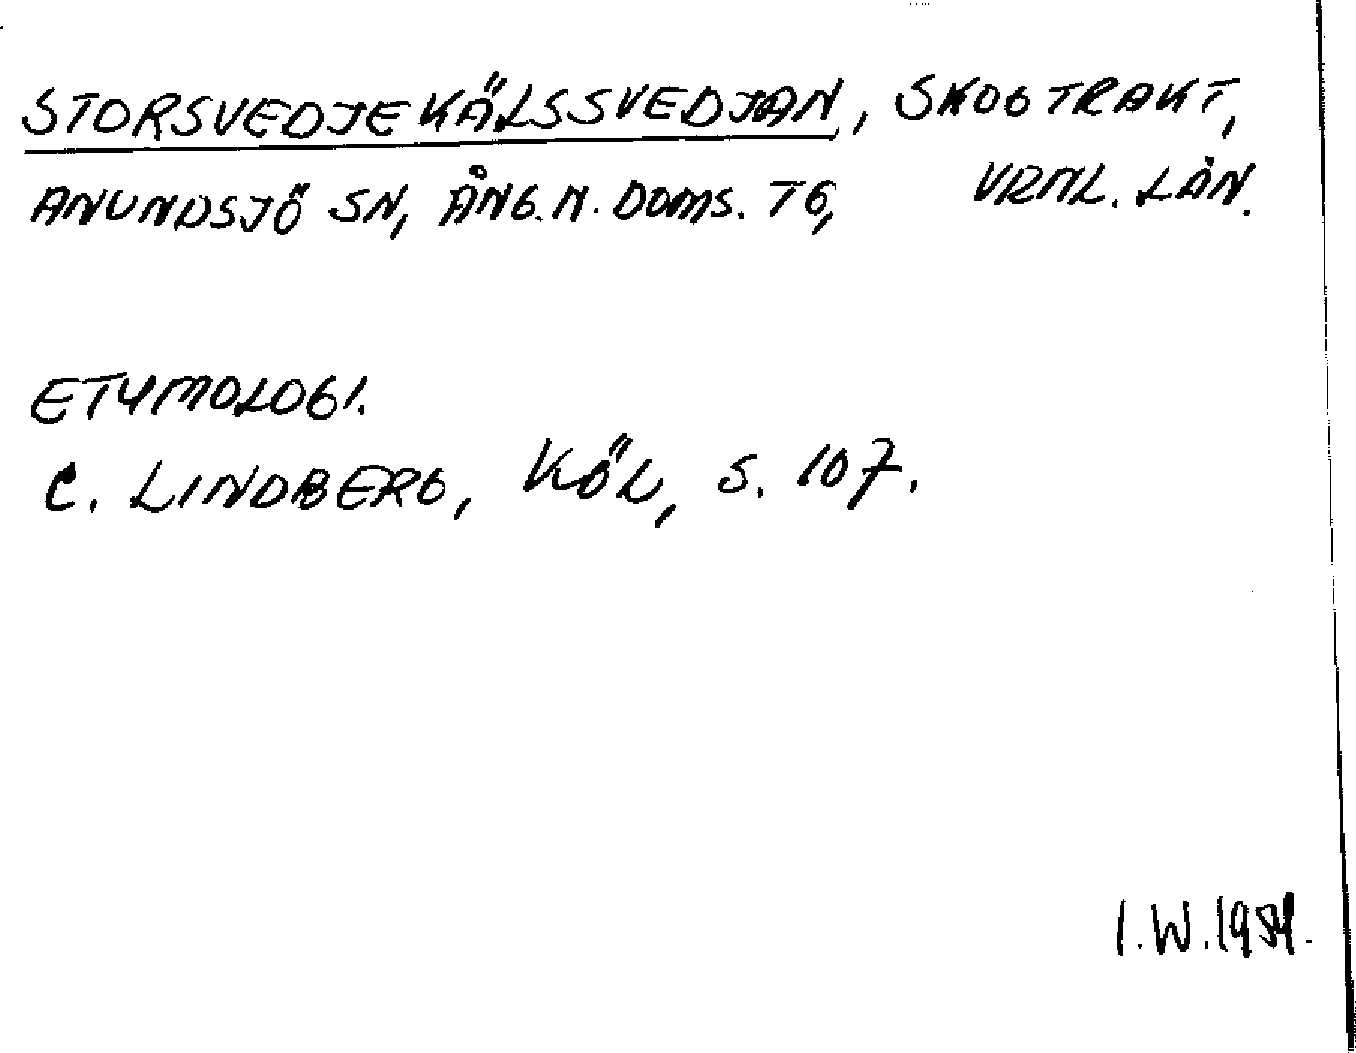 STORSVEDJEKÄLSSVEDJAN, SKOGTRAKT,
ANUNDSJÖ SN, ÅNG.N. DOMS. TG, VRNL. LÄN.
ETYMOLOGI.
C. LINDBERG, KÖL, S. 107.
I.W.